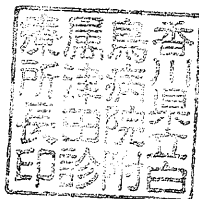 香川県立白
鳥病院附
属津田診
療所長印